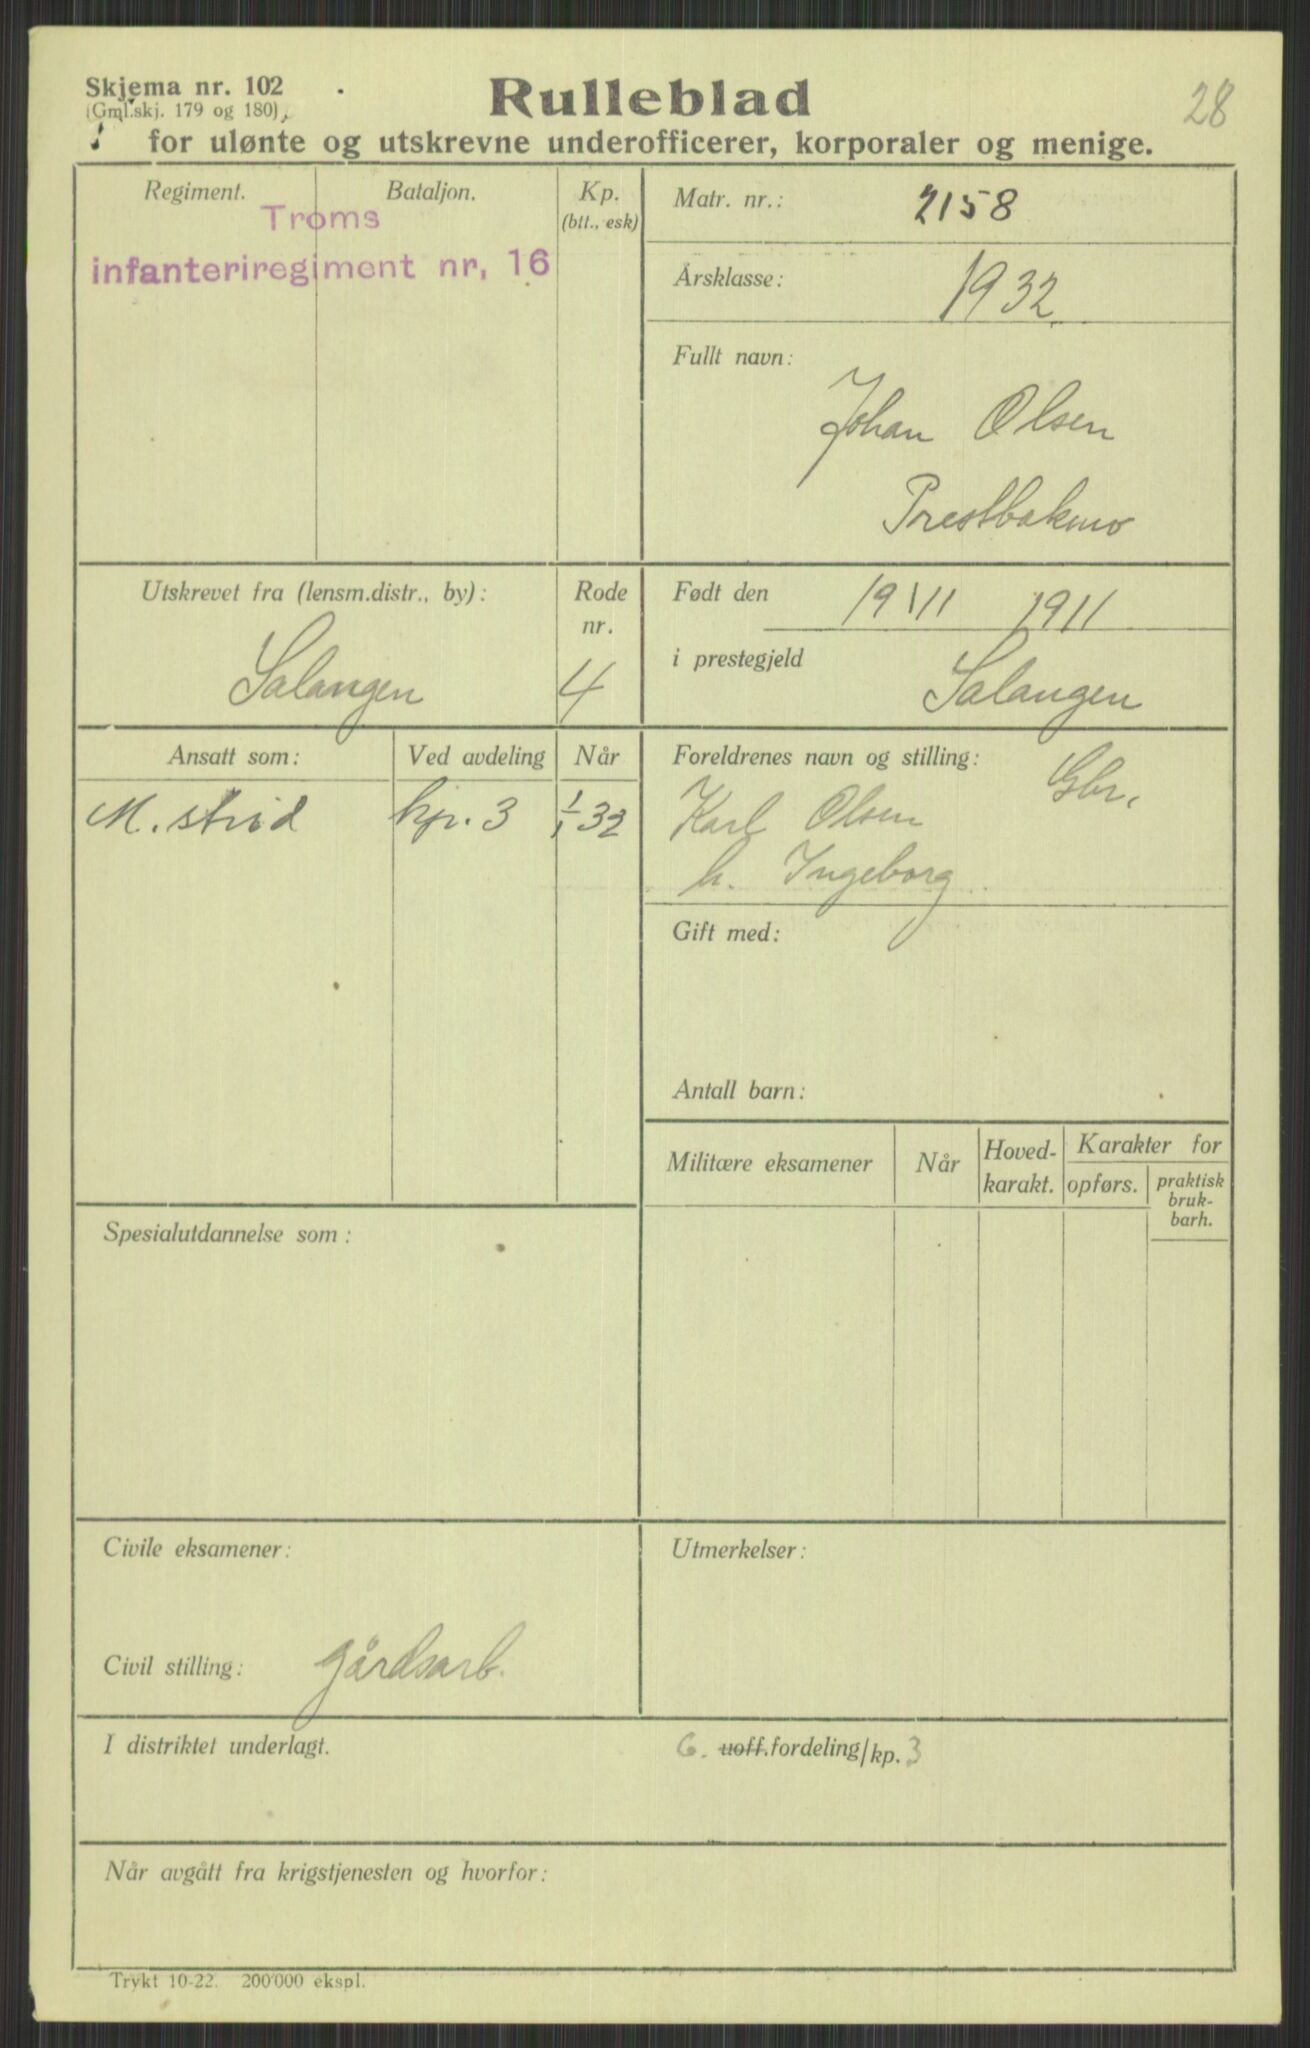 Skjema nr. 102
(Gml.skj. 179 og 180)
Rulleblad
28
for ulønte og utskrevne underofficerer, korporaler og menige.
Regiment.
Bataljon.
Kp.
(btt., esk)
Troms
infanteriregiment nr, 16
Matr. nr.: 2158
Årsklasse: 1932
Fullt navn:
Johan Olsen
Prestbakmo
Utskrevet fra (lensm.distr., by):
Salangen
Rode
nr.
4
Født den 19 VII 1911
i prestegjeld Salangen
Ansatt som:
Ved avdeling
Når
M. strid kp. 3 1/1 32
Foreldrenes navn og stilling: Gbr.
Karl Olsen
h. Ingeborg
Gift med:
Antall barn:
Militære eksamener
Når
Hoved-
karakt.
Karakter for
opførs.
praktisk
bruk-
barh.
Spesialutdannelse som:
Civile eksamener:
Civil stilling: gårdsarb.
Utmerkelser:
I distriktet underlagt.
6. uoff.fordeling/kp. 3
Når avgått fra krigstjenesten og hvorfor:
Trykt 10-22. 200'000 ekspl.